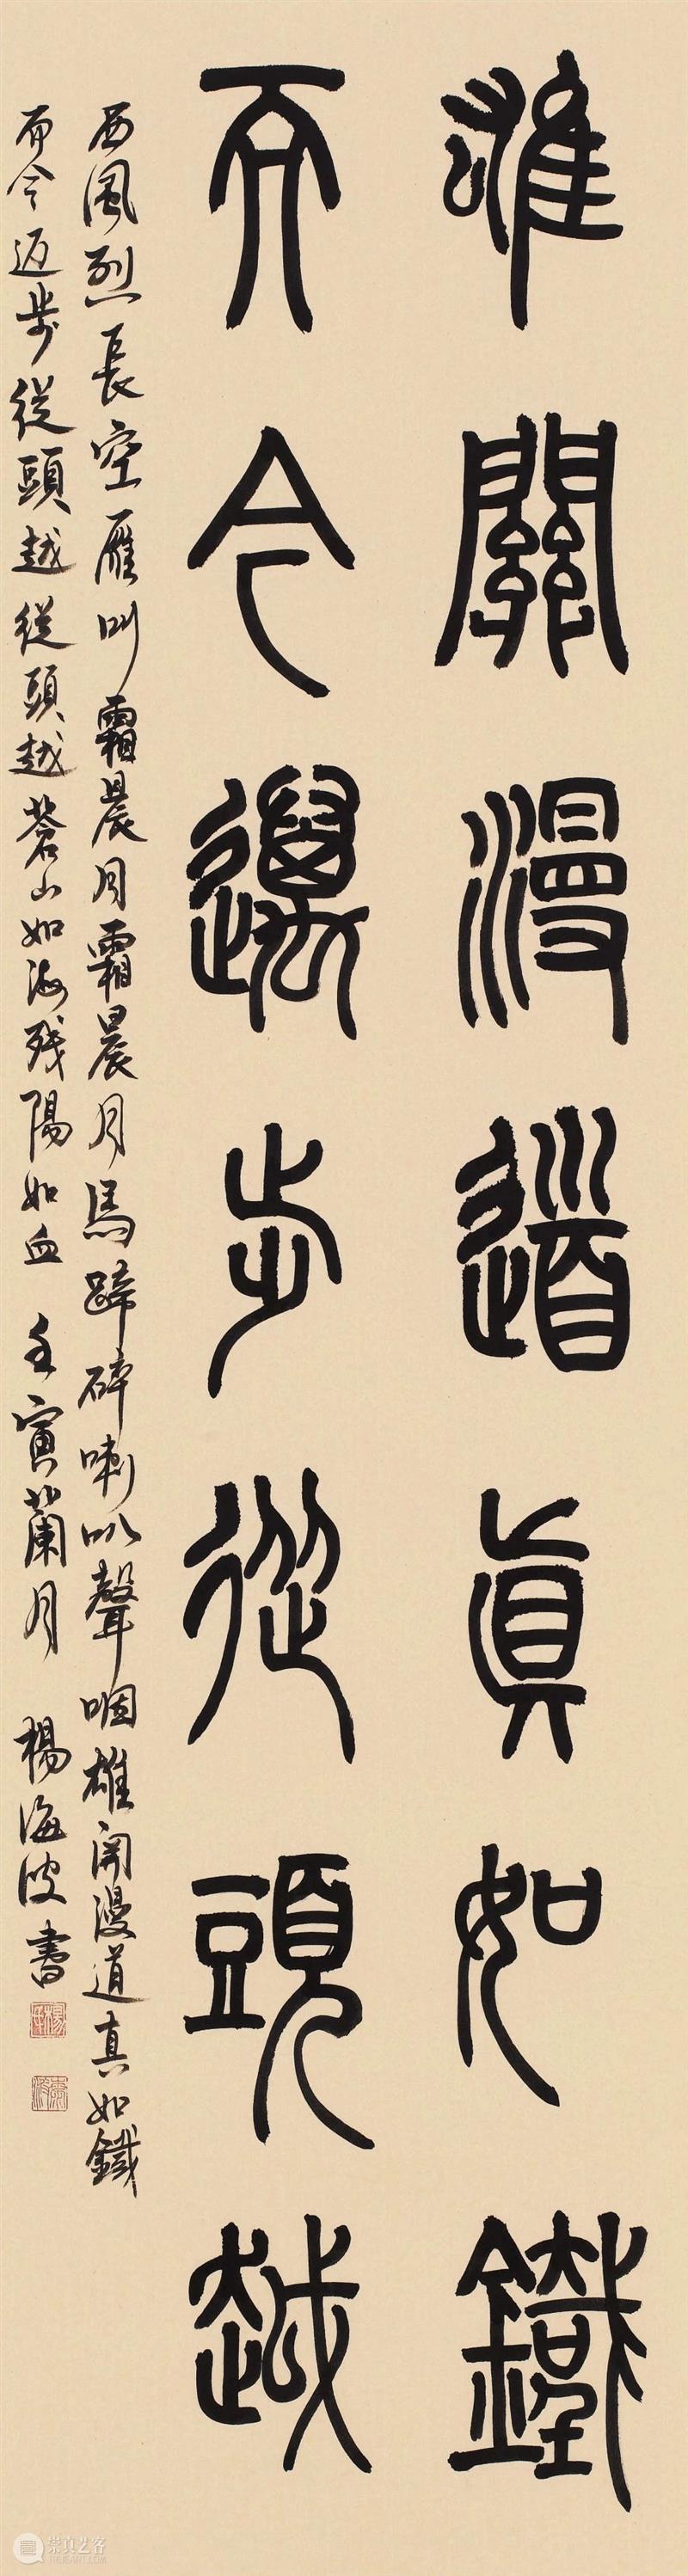 雄關漫道眞如鐵
而今邁步從頭越
西風烈長空雁叫霜晨月霜晨月馬蹄碎喇叭聲咽雄関漫道真如鐵
而今迈步從頭越從頭越蒼山如海残陽如血 壬寅蘭月 楊海波書
崇真艺客